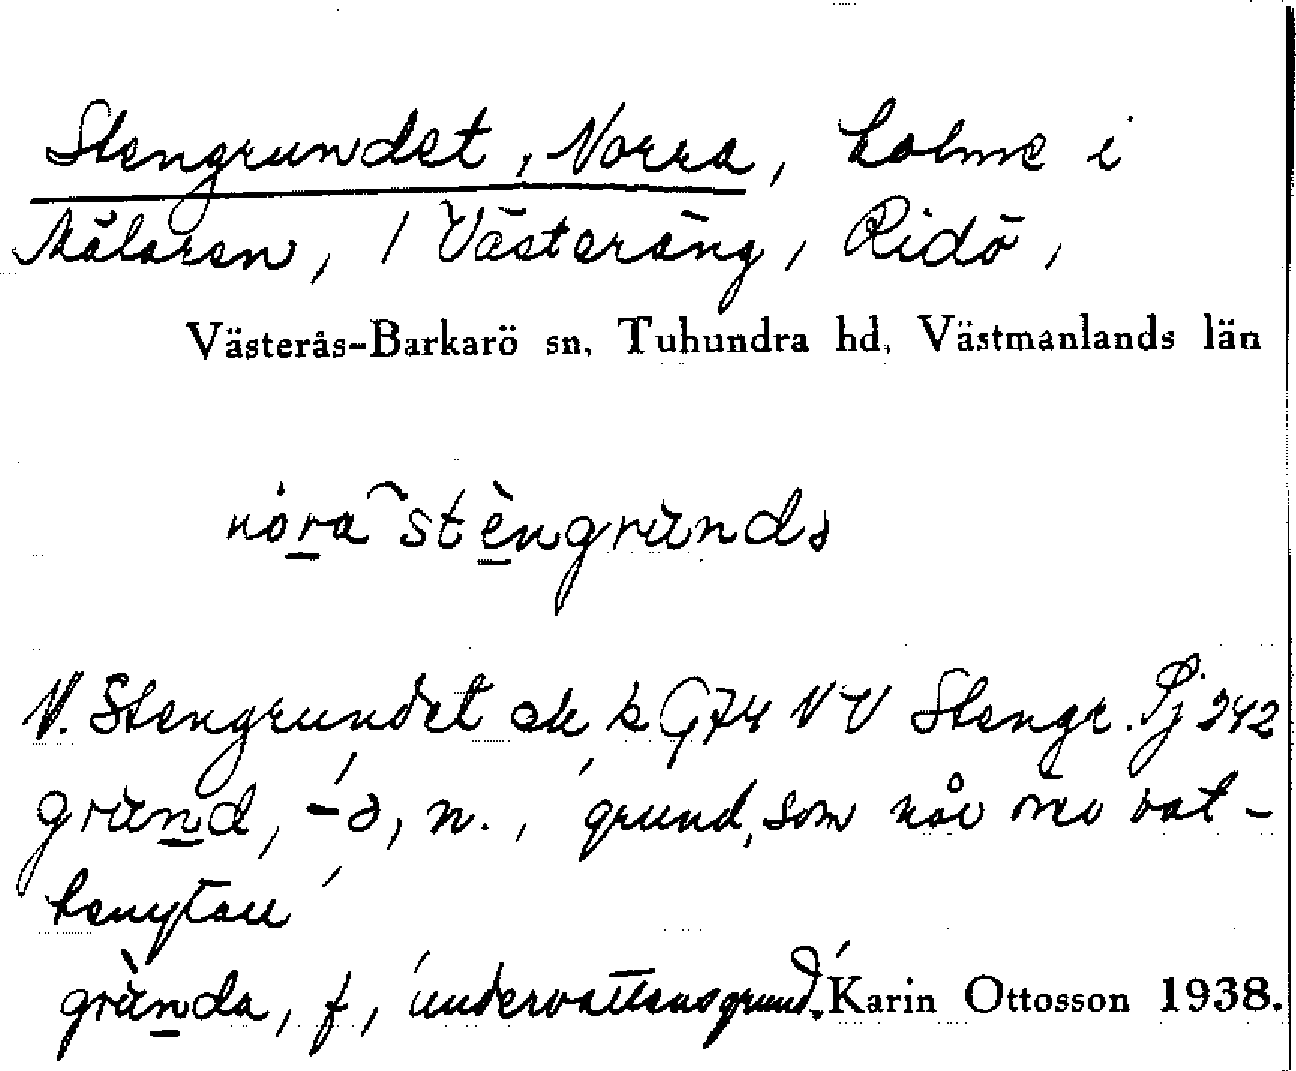 Stengrundet, Norra, holme i
Mälaren, / Västeräng, Ridö,
Västerås-Barkarö sn, Tuhundra hd, Västmanlands län
nóra stèngrund
N. Stengrundet ek k G74 NV Stengr. 242
grund, -ə, n., 'grund, som når över vat-
tenytan'
grùnda, f, 'undervattensgrund.' Karin Ottosson 1938.